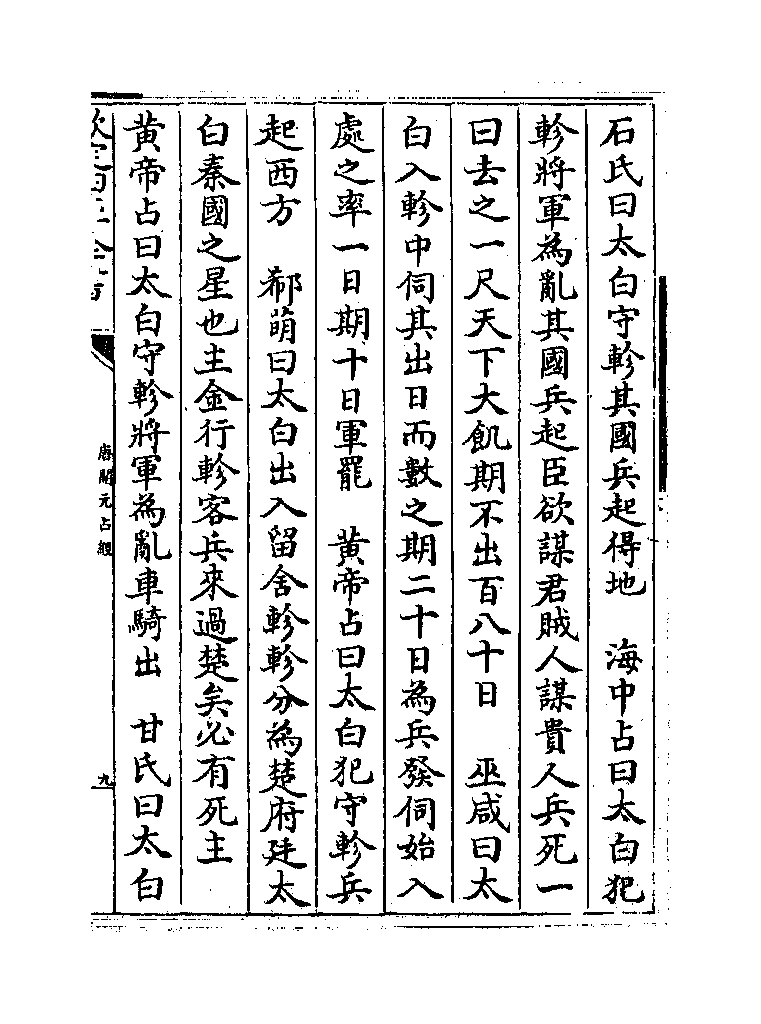 石氏曰太白守軫其國兵起得地　海中占曰太白犯
軫將軍為亂其國兵起臣欲謀君賊人謀貴人兵死一
曰去之一尺天下大飢期不出百八十日　巫咸曰太
白入軫中伺其出日而數之期二十日為兵發伺始入
處之率一日期十日軍罷　黃帝占曰太白犯守軫兵
起西方　郗萌曰太白出入留舍軫軫分為楚府廷太
白秦國之星也主金行軫客兵來過楚矣必有死主
黃帝占曰太白守軫將軍為亂車騎出　甘氏曰太白
唐開元占經
九